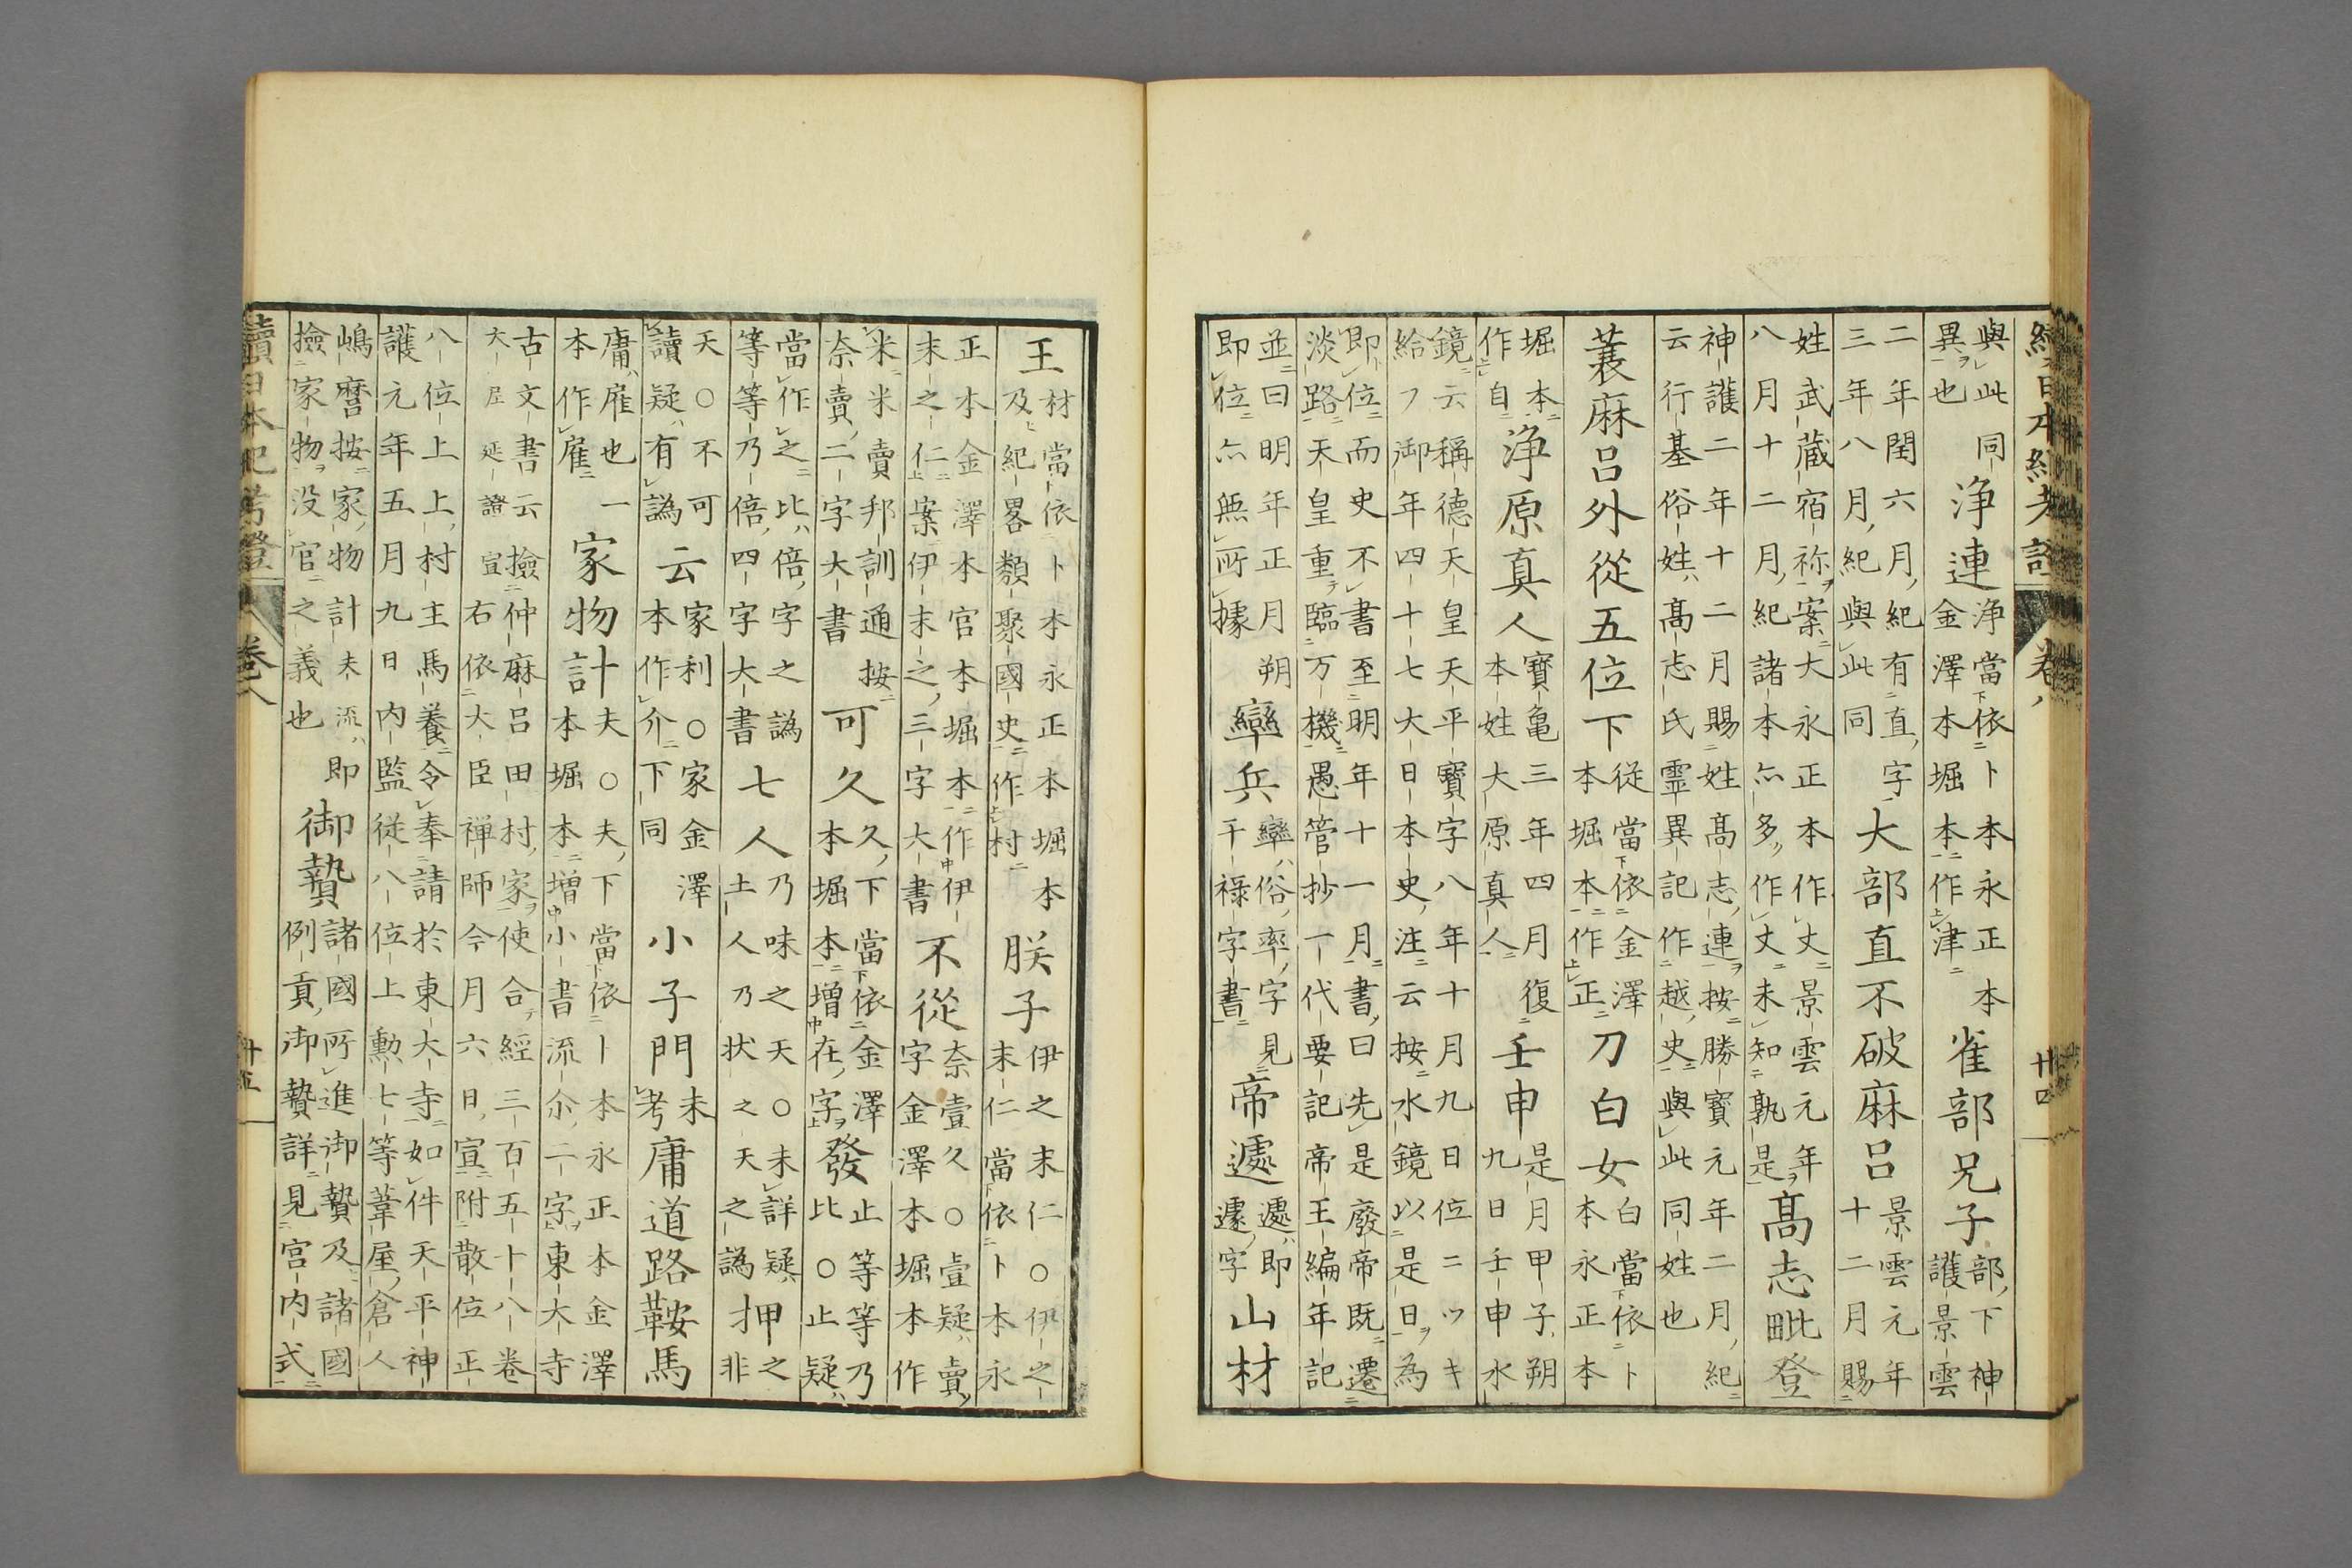 續日本紀考證 卷八 廿四
與此同
異也
淨連
淨當依卜本永正本
金澤本堀本作津
雀部兄子
部下神
護景雲
二年閏六月紀有直字
三年八月紀與此同
大部直不破麻呂
景雲元年
十二月賜
姓武蔵宿祢案大永正本作丈景雲元年
八月十二月紀諸本亦多作丈未知孰是
髙志毗登
神護二年十二月賜姓髙志連按勝寳元年二月紀
云行基俗姓髙志氏霊異記作越史與此同姓也
蓑麻呂外從五位下
從當依金澤
本堀本作正
刀白女
白當依卜
本永正本
堀本
作自
浄原真人
寳亀三年四月復
本姓大原真人
壬申
是月甲子朔
九日壬申水
鏡云稱德天皇天平寳字八年十月九日位ニツキ
給フ御年四十七大日本史注云按水鏡以是日為
即位而史不書至明年十一月書曰先是廢帝既遷
淡路天皇重臨万機愚管抄一代要記帝王編年記
並曰明年正月朔
即位亦無所據
兵
俗率字見
干祿字書
帝遽
即
遽字
山材
王
材當依卜本永正本堀本
及紀畧類聚國史作村
朕子
伊之末仁○伊之
末仁當依卜本永
正本金澤本官本堀本作伊
末之仁案伊末之三字大書
不從
奈壹久○壹疑賣
字金澤本堀本作
米米賣邦訓通按
奈賣二字大書
可久
久下當依金澤
本堀本増在字
發
止等等乃
比○止疑
當作之比倍字之譌
等等乃倍四字大書
七人
乃味之天○未詳疑
士人乃状之天之譌
押之
才非
天○不可
讀疑有譌
云
家利○家金澤
本作介下同
小子門
未
考
庸道路鞍馬
庸雇也一
本作雇
家物計
夫○夫下當依卜本永正本金澤
本堀本増小書流尒二字東大寺
古文書云撿仲麻呂田村家使合經三百五十八卷
大屋延證宣右依大臣禅師今月六日宣附散位正
八位上上村主馬養令奉請於東大寺如件天平神
護元年五月九日内監従八位上勳七等葦屋倉人
嶋麿按家物計夫流即
撿家物没官之義也
御贄
諸國所進御贄及諸國
例貢御贄詳見宮内式
續日本紀考證 卷八 廿五